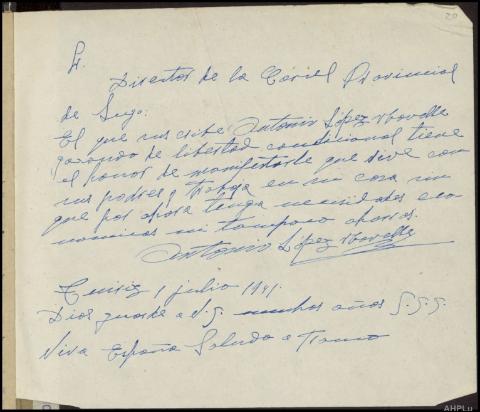 20
Sr.
Director de la Cárcel Provincial
de Lugo:
El que suscribe Antonio López
gozando de libertad condicional tiene
el honor de manifestarle que vive con
sus padres y trabaja en su casa sin
que por ahora tenga necesidades eco
nomicas ni tampoco ahorros.
Antonio López
1 julio 1941.
Dios guarde a V.S. muchos años S.S.S.
Viva España Saludo a Franco
AHPLu